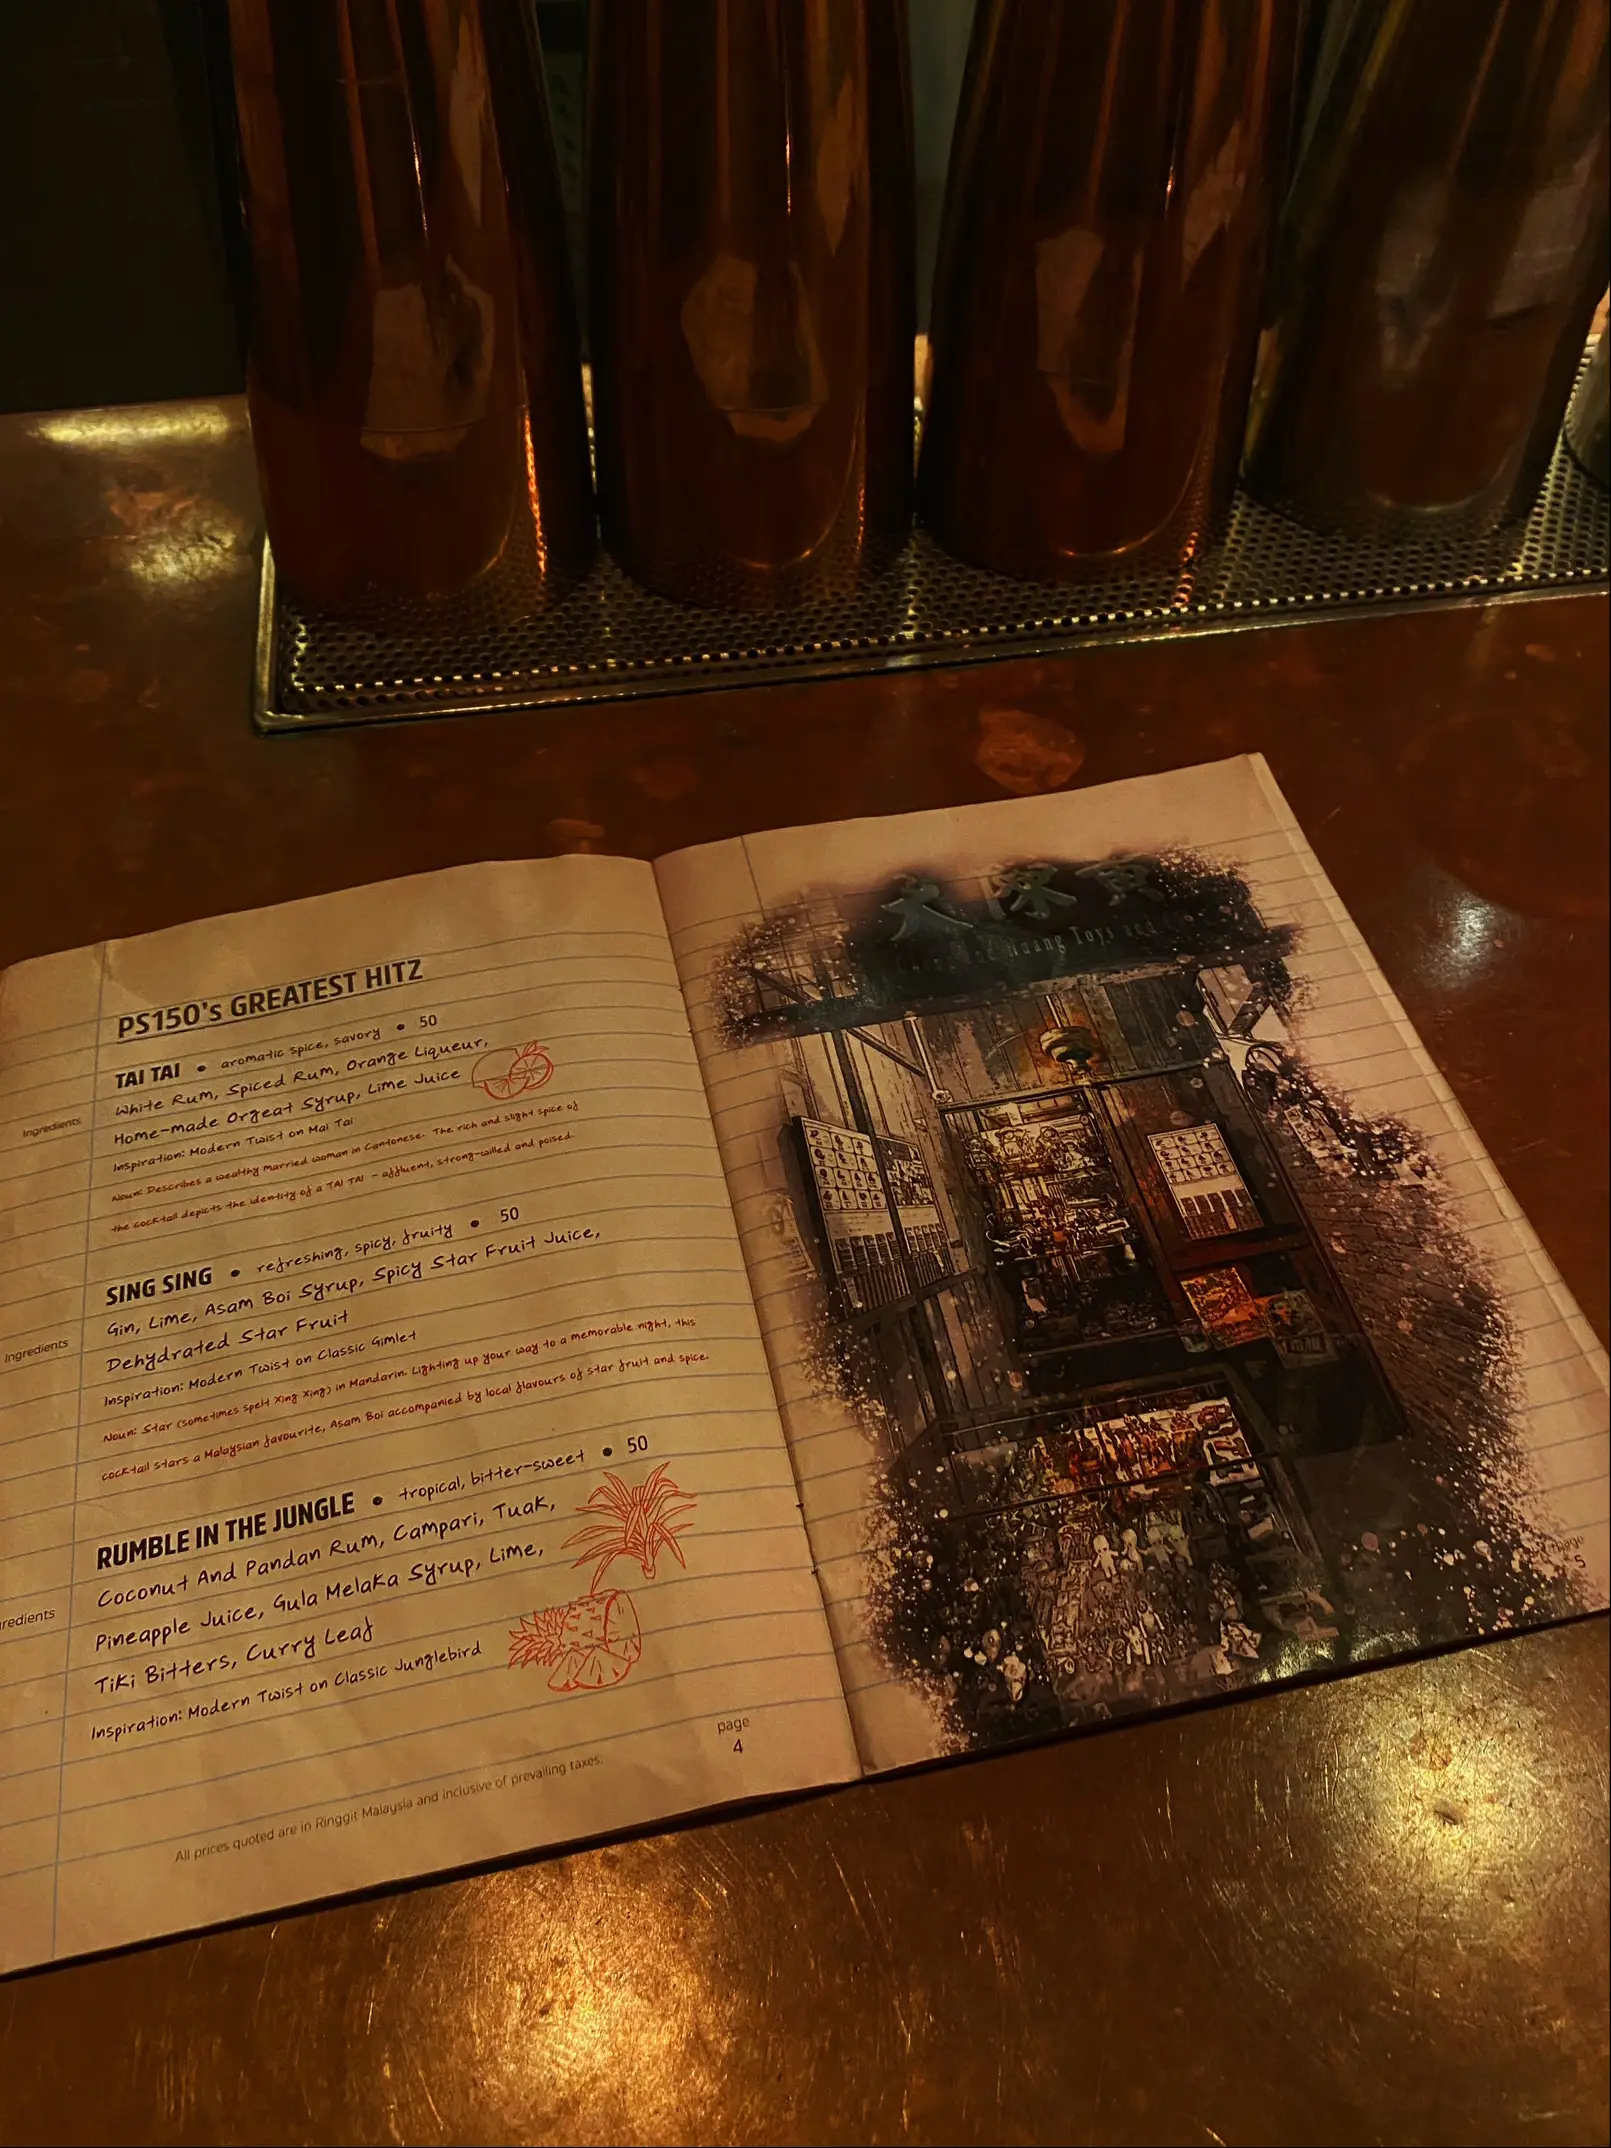 PS150's GREATEST HITZ
TAI TAI • aromatic spice, savory • 50
White Rum, Spiced Rum, Orange Liqueur,
Ingredients
Home-made Orgeat Syrup, Lime Juice
Inspiration: Modern Twist on Mai Tai
Noun: Describes a wealthy married woman in Cantonese. The rich and slight spice of
the cocktail depicts the identity of a TAI TAI - affluent, strong-willed and poised.
SING SING • refreshing, spicy, fruity • 50
Gin, Lime, Asam Boi Syrup, Spicy Star Fruit Juice,
Ingredients
Dehydrated Star Fruit
Inspiration: Modern Twist on Classic Gimlet
Noun: Star (sometimes spelt Xing Xing) in Mandarin. Lighting up your way to a memorable night, this
cocktail stars a Malaysian favourite, Asam Boi accompanied by local flavours of star fruit and spice.
RUMBLE IN THE JUNGLE • tropical, bitter-sweet • 50
Coconut And Pandan Rum, Campari, Tuak,
redients
Pineapple Juice, Gula Melaka Syrup, Lime,
Tiki Bitters, Curry Leaf
Inspiration: Modern Twist on Classic Junglebird
page
4
All prices quoted are in Ringgit Malaysia and inclusive of prevailing taxes.
Huang Toys and
page
5